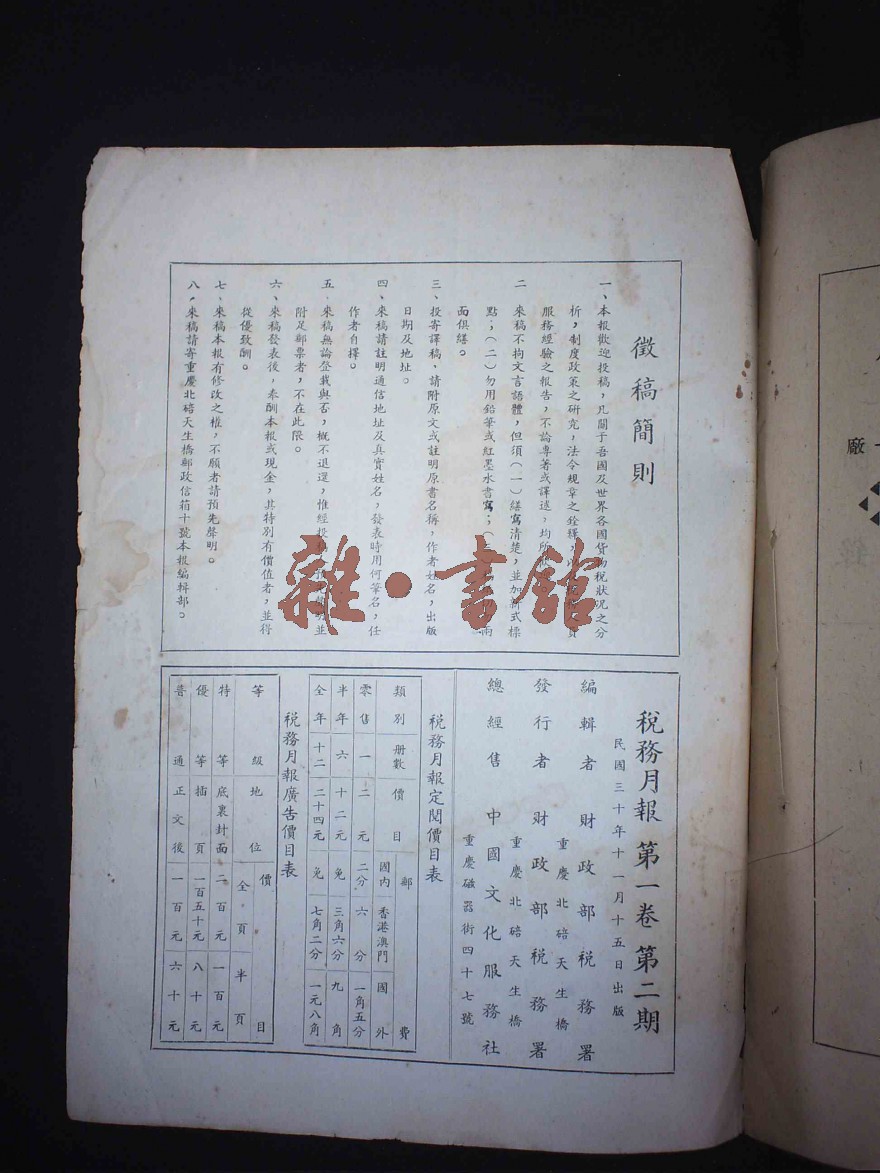 徵稿簡則
一、本報歡迎投稿，凡關于吾國及世界各國貨物稅狀況之分
析，制度政策之研究，法令規章之銓釋，
服務經驗之報告，不論專著或譯述，均所
二 來稿不拘文言語體，但須（一）繕寫清楚，並加新式標
點；（二）勿用鉛筆或紅墨水書寫；（三
面俱繕。
三、投寄譯稿，請附原文或註明原書名稱，作者姓名，出版
日期及地址。
四、來稿請註明通信地址及真實姓名，發表時用何筆名，任
作者自擇。
五、來稿無論登載與否，概不退還，惟經投 並
附足郵票者，不在此限。
六、來稿發表後，奉酬本報或現金，其特別有價值者，並得
從優致酬。
七、來稿本報有修改之權，不願者請預先聲明。
八、來稿請寄重慶北碚天生橋郵政信箱十號本報編輯部。
稅務月報 第一卷 第二期
民國三十年十一月十五日出版
編輯者 財政部稅務署
重慶北碚天生橋
發行者 財政部稅務署
重慶北碚天生橋
總經售 中國文化服務社
重慶磁器街四十七號
稅務月報定閱價目表
類別 冊數 價目 郵費
國內 香港澳門 國外
零售 一 二元 二分 六分 一角五分
半年 六 十二元 免 三角六分 九角
全年 十二 二十四元 免 七角二分 一元八角
稅務月報廣告價目表
等級 地位 價目
全頁 半頁
特等 底裏封面 二百元 一百元
優等 插頁 一百五十元 八十元
普通 正文後 一百元 六十元
雜·書館
廠